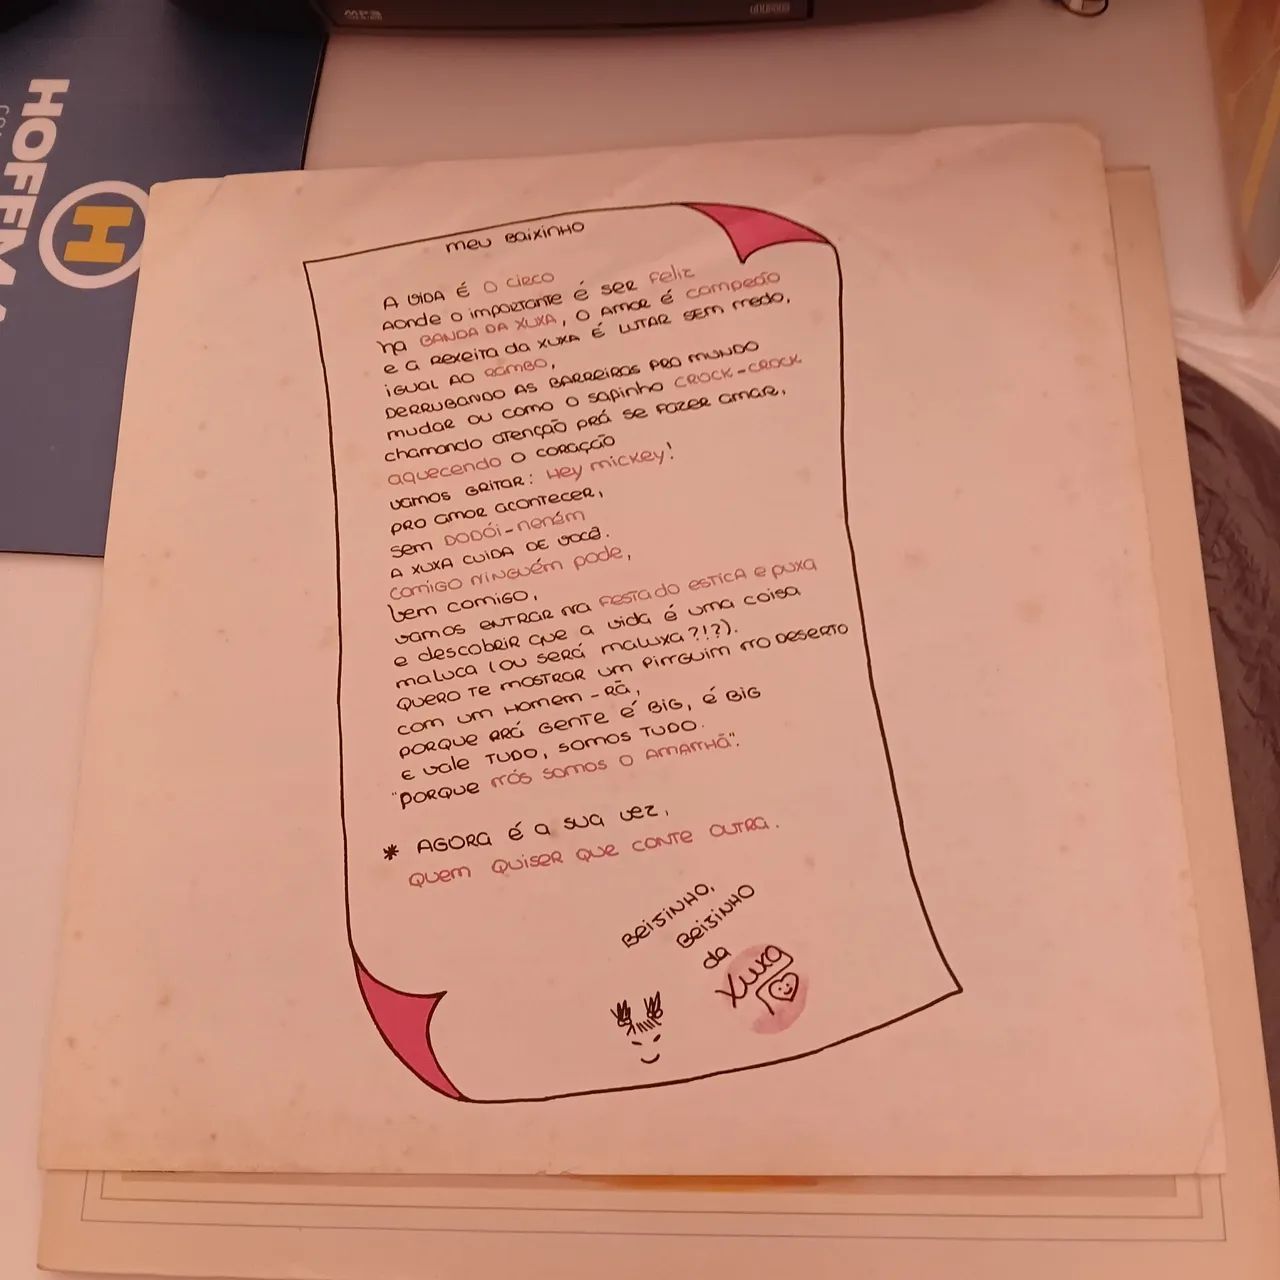 MP3
HOFEM
H
meu Baixinho
A VIDA É O CIRCO
aonde o importante é ser feliz
na BANDA DA XUXA, O AMOR É campeão
e a Rexeita da XUXA É LUTAR SEM medo,
igual ao RAMBO,
DERRUBANDO AS BARREIRAS PRO MUNDO
mudar ou como o sapinho CROCK-CROCK
chamando atenção prá se fazer amar,
aquecendo o coração
vamos GRITAR: Hey mickey!
PRO amor acontecer,
sem DODÓI-neném
A XUXA CUIDA DE você.
comigo ninguém pode,
bem comigo,
vamos ENTRAR na FESTA do ESTICA e puxa
e descobrir que a vida é uma coisa
maluca (ou será maluxa?!?).
QUERO TE MOSTRAR um PINGUIM no DESERTO
com um Homem-RÃ,
PORQUE PRÁ GENTE É BIG, É BIG
E vale TUDO, somos TUDO.
"PORQUE nós somos o AMANHÃ".
* AGORA É a sua vez,
QUEM QUISER QUE CONTE OUTRA.
BEIJINHO,
BEIJINHO
da
Xuxa